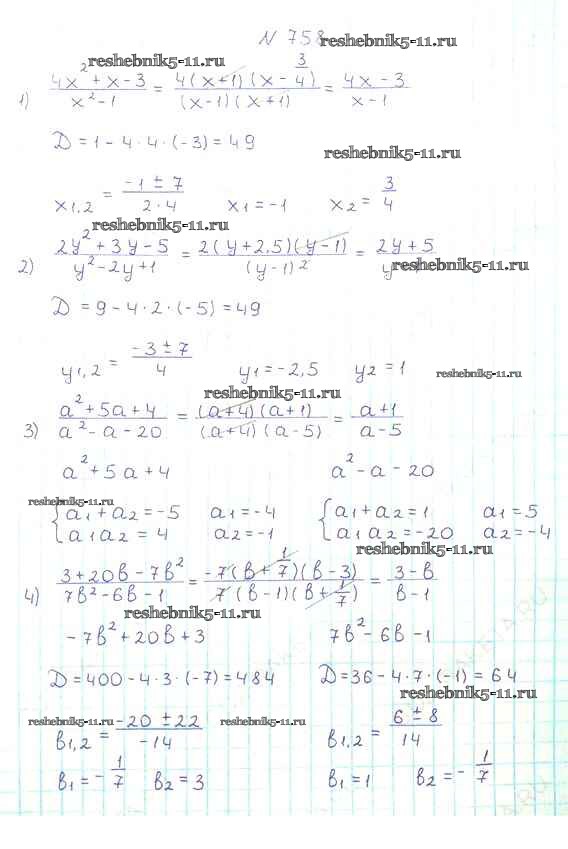 N 758 reshebnik5-11.ru
reshebnik5-11.ru
1) (4x² + x - 3)/(x² - 1) = (4(x+1)(x - 3/4))/((x-1)(x+1)) = (4x - 3)/(x - 1)
D = 1 - 4 · 4 · (-3) = 49
reshebnik5-11.ru
x1,2 = (-1 ± 7)/(2 · 4) x1 = -1 x2 = 3/4
reshebnik5-11.ru
2) (2y² + 3y - 5)/(y² - 2y + 1) = (2(y + 2,5)(y - 1))/((y-1)²) = (2y + 5)/y
reshebnik5-11.ru
D = 9 - 4 · 2 · (-5) = 49
y1,2 = (-3 ± 7)/4 y1 = -2,5 y2 = 1 reshebnik5-11.ru
reshebnik5-11.ru
3) (a² + 5a + 4)/(a² - a - 20) = ((a+4)(a+1))/((a+4)(a-5)) = (a+1)/(a-5)
a² + 5a + 4 a² - a - 20
reshebnik5-11.ru
{ a1 + a2 = -5 a1 = -4 { a1 + a2 = 1 a1 = 5
a1a2 = 4 a2 = -1 a1a2 = -20 a2 = -4
reshebnik5-11.ru
4) (3 + 20в - 7в²)/(7в² - 6в - 1) = (-7(в + 1/7)(в - 3))/(7(в-1)(в + 1/7)) = (3 - в)/(в - 1)
reshebnik5-11.ru
-7в² + 20в + 3 7в² - 6в - 1
D = 400 - 4 · 3 · (-7) = 484 D = 36 - 4 · 7 · (-1) = 64
reshebnik5-11.ru
reshebnik5-11.ru reshebnik5-11.ru
в1,2 = (-20 ± 22)/(-14) в1,2 = (6 ± 8)/14
в1 = -1/7 в2 = 3 в1 = 1 в2 = -1/7